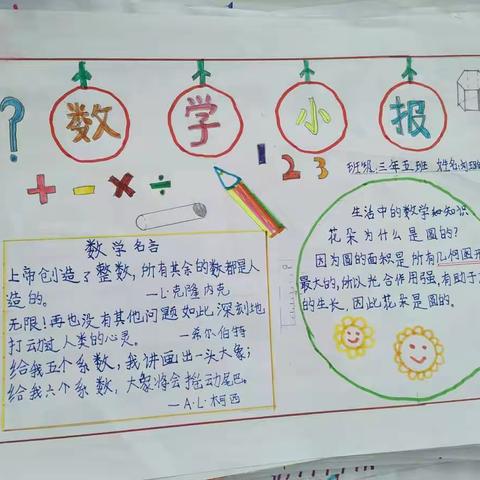 数学小报
?
1 2 3
+ - × ÷
班级:三年五班 姓名:
数学名言
上帝创造了整数,所有其余的数都是人
造的。
—L·克隆内克
无限!再也没有其他问题如此深刻地
打动过人类的心灵。
—希尔伯特
给我五个系数,我讲画出一头大象;
给我六个系数,大象将会摇动尾巴。
—A·L·柯西
生活中的数学知识
花朵为什么是圆的?
因为圆的面积是所有几何图形
最大的,所以光合作用强,有助于
的生长,因此花朵是圆的。